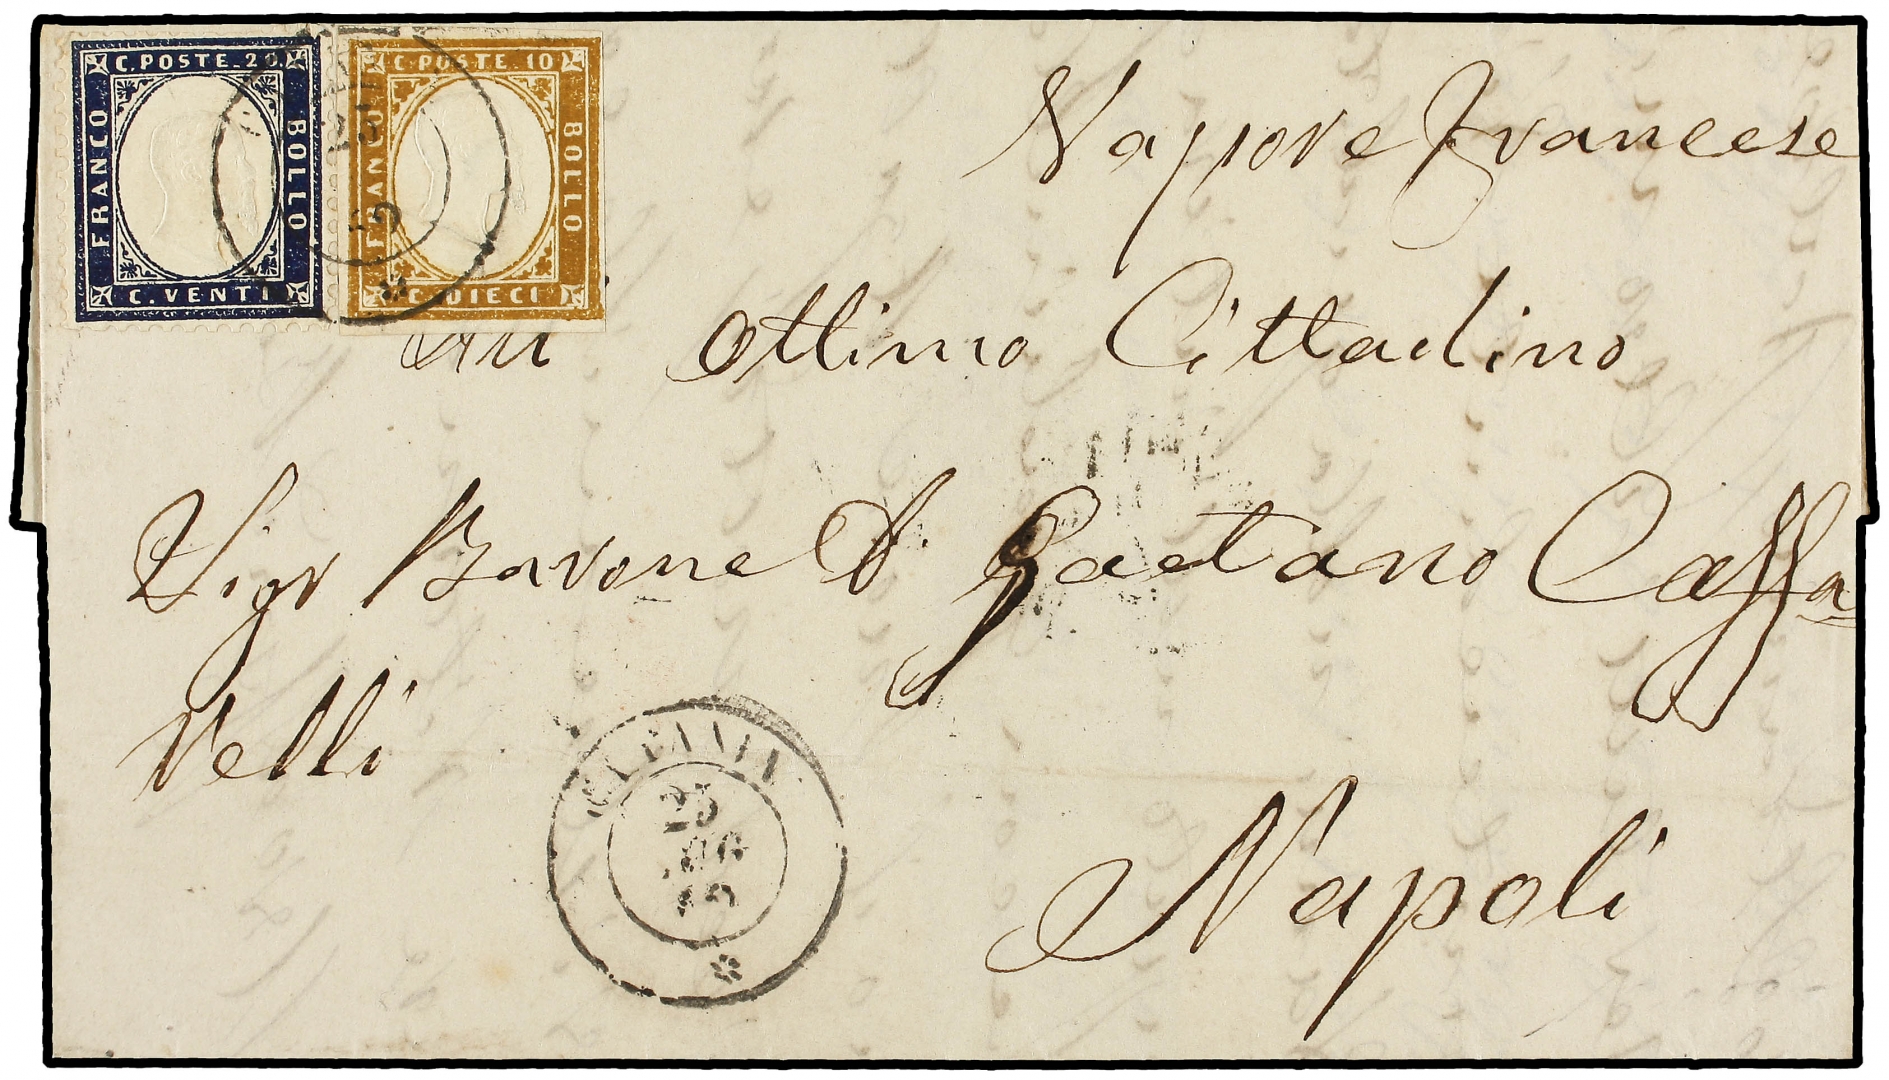 C. POSTE. 20.
FRANCO
BOLLO
C. VENTI
C. POSTE. 10
FRANCO
BOLLO
C. DIECI
25
Vappore Francese
All' Ottimo Cittadino
Sigr Barone D. Gaetano Caffa
relli
CATANIA
25
AGO
Napoli